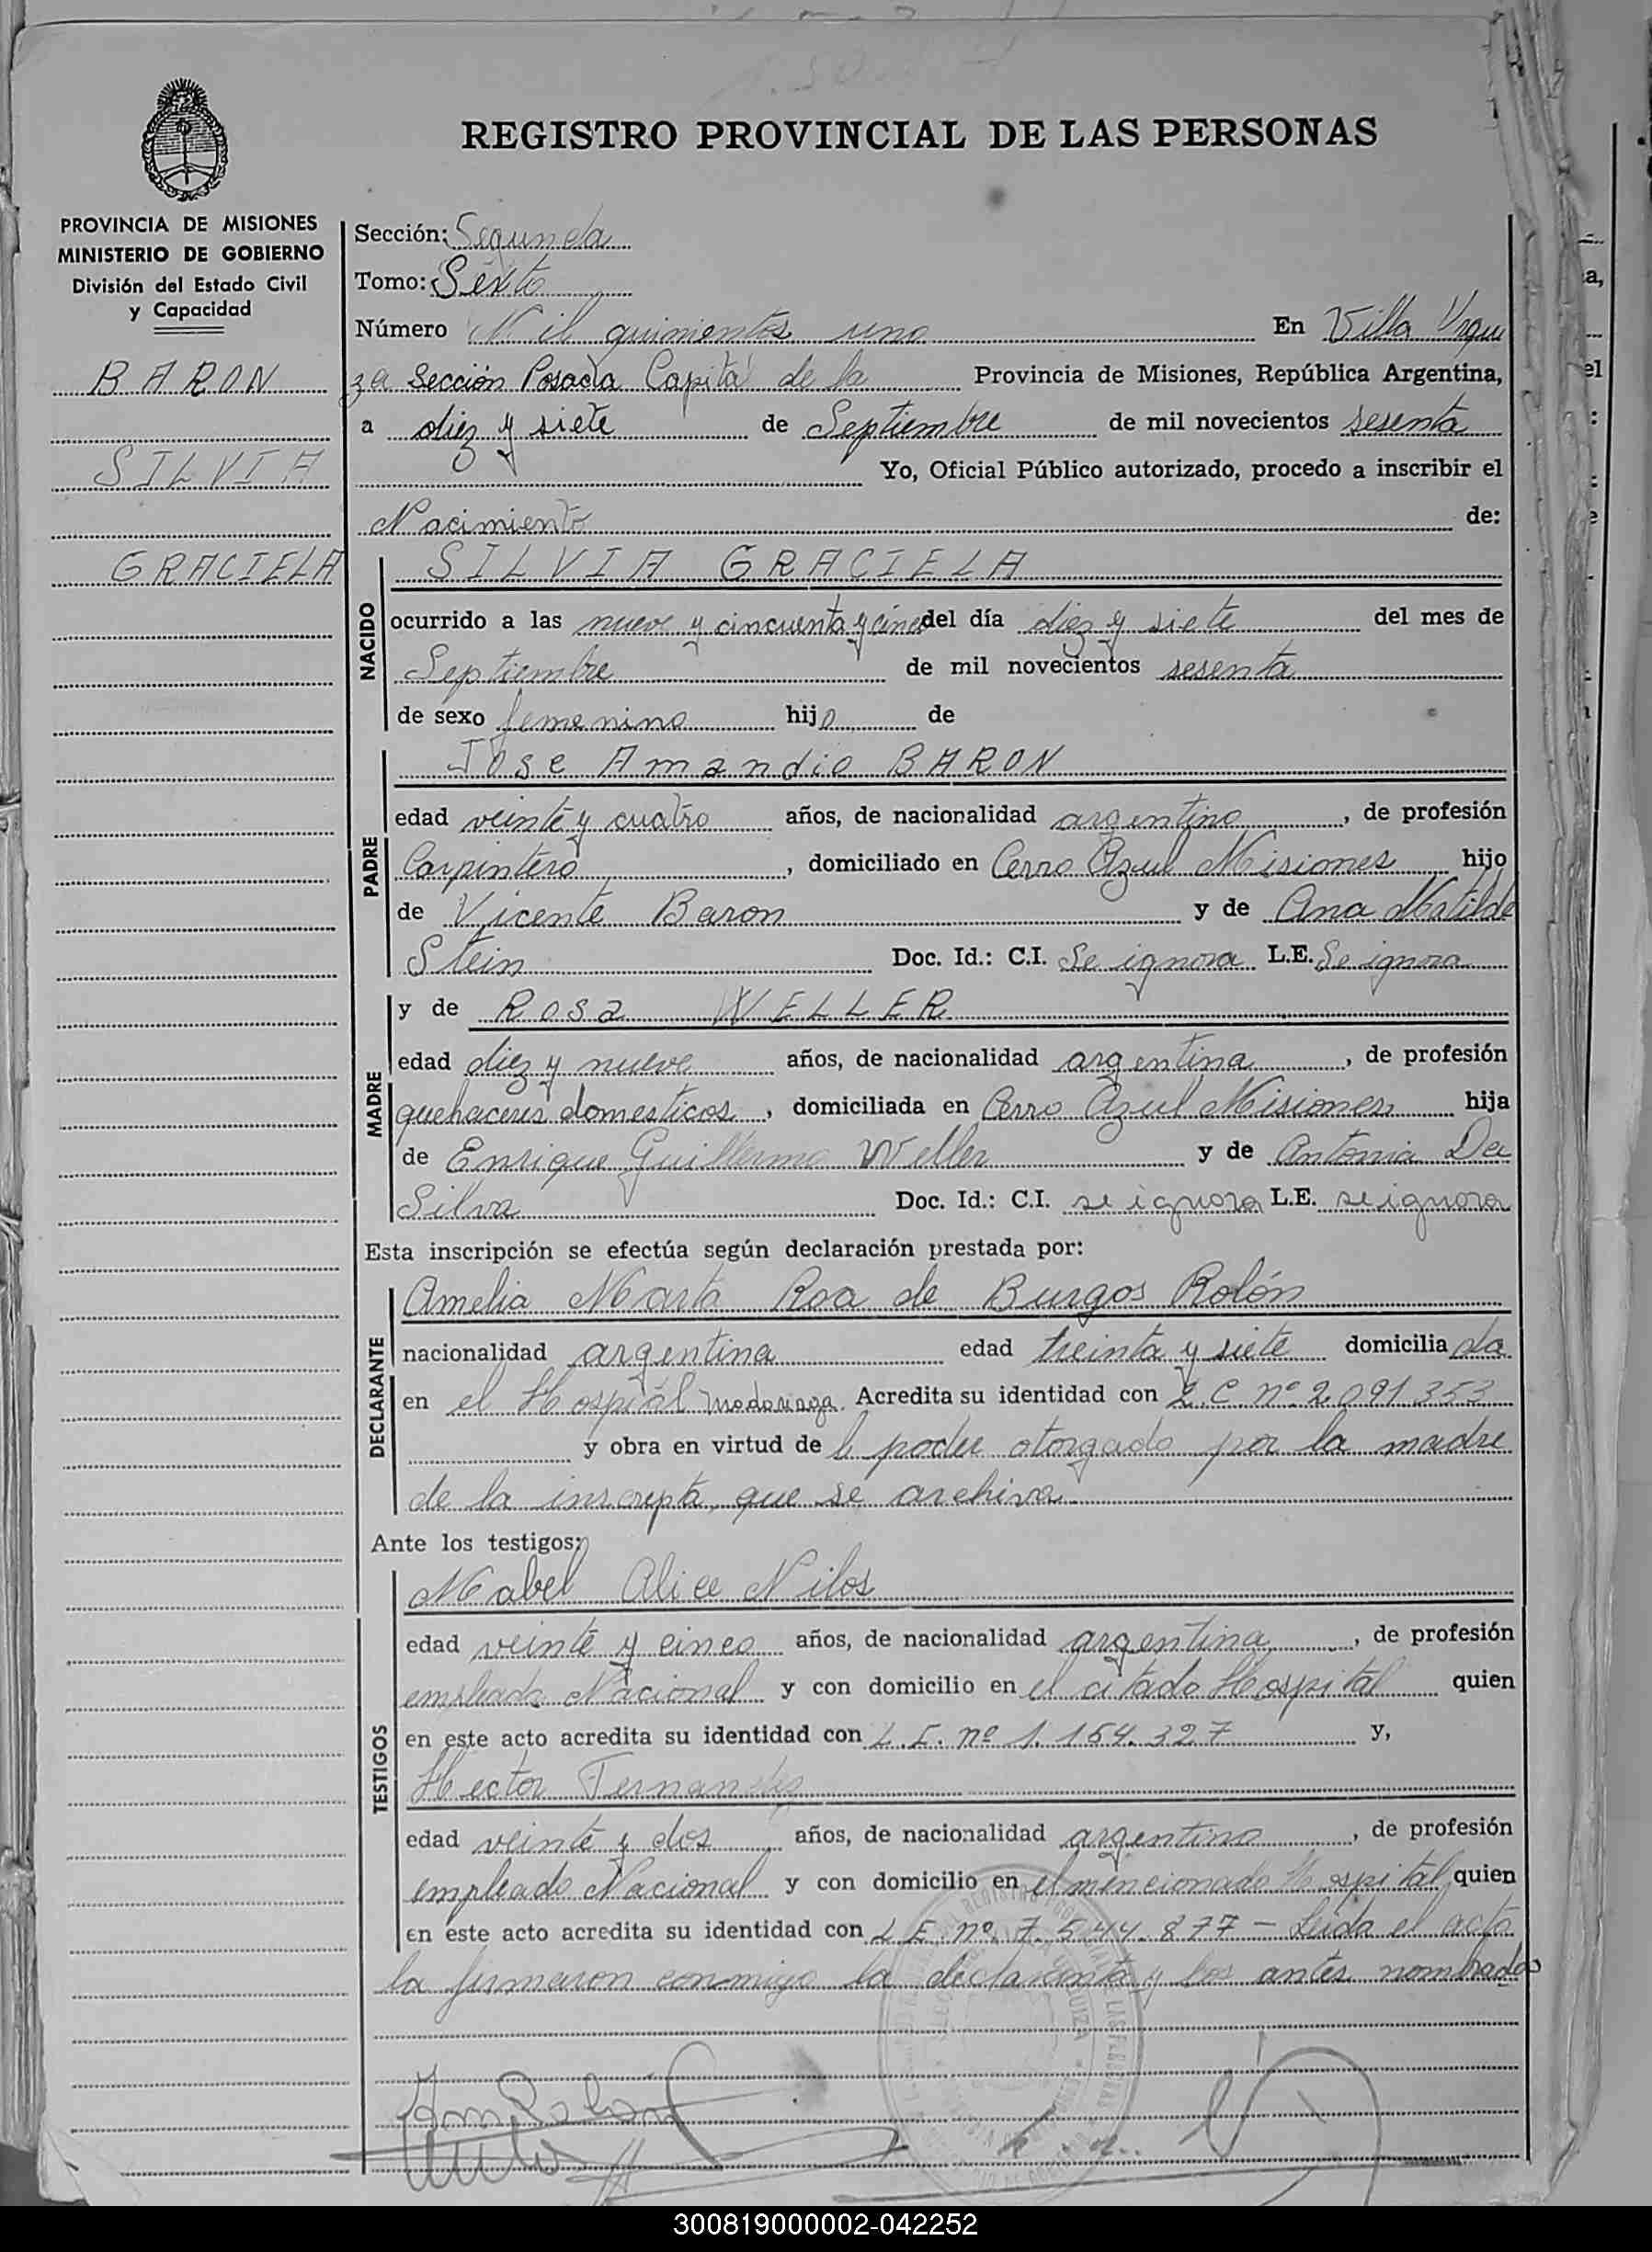 REGISTRO PROVINCIAL DE LAS PERSONAS
PROVINCIA DE MISIONES
MINISTERIO DE GOBIERNO
División del Estado Civil
y Capacidad
BARON
SILVIA
GRACIELA
Sección: Segunda
Tomo: Sexto
Número Mil quinientos uno En Villa Urqui
za Sección Posada Capital de la Provincia de Misiones, República Argentina,
a diez y siete de Septiembre de mil novecientos sesenta
Yo, Oficial Público autorizado, procedo a inscribir el
Nacimiento de:
NACIDO
SILVIA GRACIELA
ocurrido a las nueve y cincuenta y cinco del día diez y siete del mes de
Septiembre de mil novecientos sesenta
de sexo femenino hijo de
PADRE
Jose Amandio BARON
edad veinte y cuatro años, de nacionalidad argentino, de profesión
Carpintero, domiciliado en Cerro Azul Misiones hijo
de Vicente Baron y de Ana Matilde
Stein Doc. Id.: C.I. Se ignora L.E. Se ignora
MADRE
y de Rosa WELLER
edad diez y nueve años, de nacionalidad argentina, de profesión
quehaceres domesticos, domiciliada en Cerro Azul Misiones hija
de Enrique Guillermo Weller y de Antonia Da
Silva Doc. Id.: C.I. se ignora L.E. se ignora
Esta inscripción se efectúa según declaración prestada por:
DECLARANTE
Amelia Marta Roa de Burgos Rolón
nacionalidad argentina edad treinta y siete domicilia da
en el Hospital Madariaga. Acredita su identidad con L.C. nº 2.091.353
y obra en virtud de l poder otorgado por la madre
de la inscripta, que se archiva
Ante los testigos:
TESTIGOS
Mabel Alice Nilos
edad veinte y cinco años, de nacionalidad argentina, de profesión
empleada Nacional y con domicilio en el citado Hospital quien
en este acto acredita su identidad con L.C. nº 1.154.327 y,
Hector Fernandez
edad veinte y dos años, de nacionalidad argentino, de profesión
empleado Nacional y con domicilio en el mencionado Hospital quien
en este acto acredita su identidad con L E nº 7.544.877 — Leida el acta
la firmaron conmigo la declarante y los antes nombrados
300819000002-042252